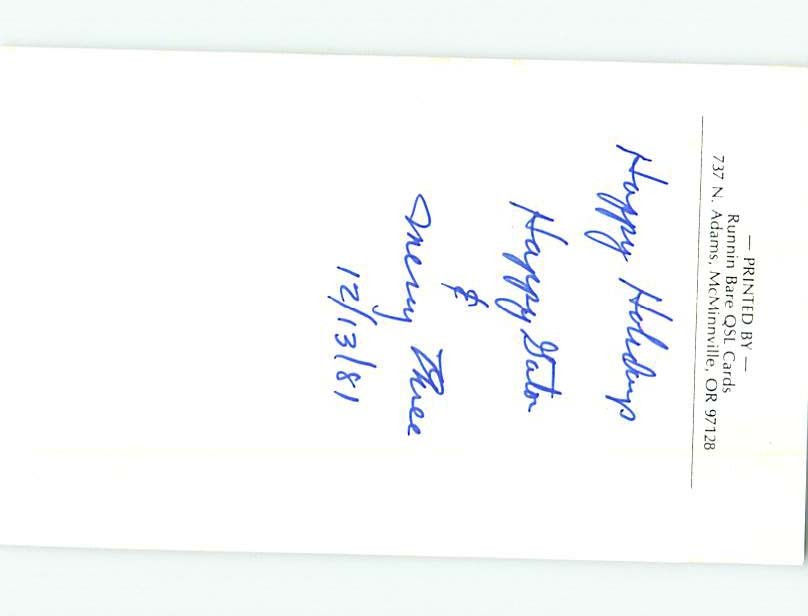 — PRINTED BY —
Runnin Bare QSL Cards
737 N. Adams, McMinnville, OR 97128
Happy Holidays
Happy Gator
&
Merry Three
12/13/81